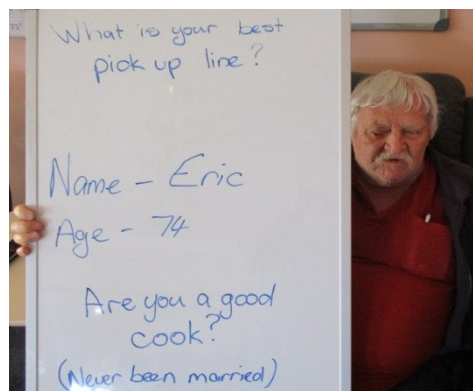 What is your best
pick up line?
Name - Eric
Age - 74
Are you a good
cook?
(Never been married)